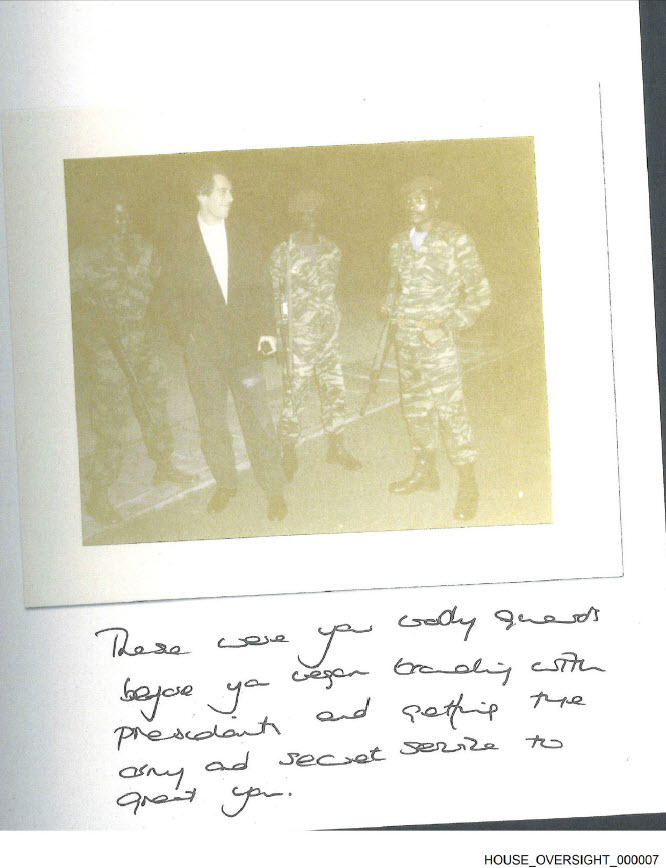 These were your body guards
before you began traveling with
presidents and getting the
army and secret service to
greet you.
HOUSE_OVERSIGHT_000007